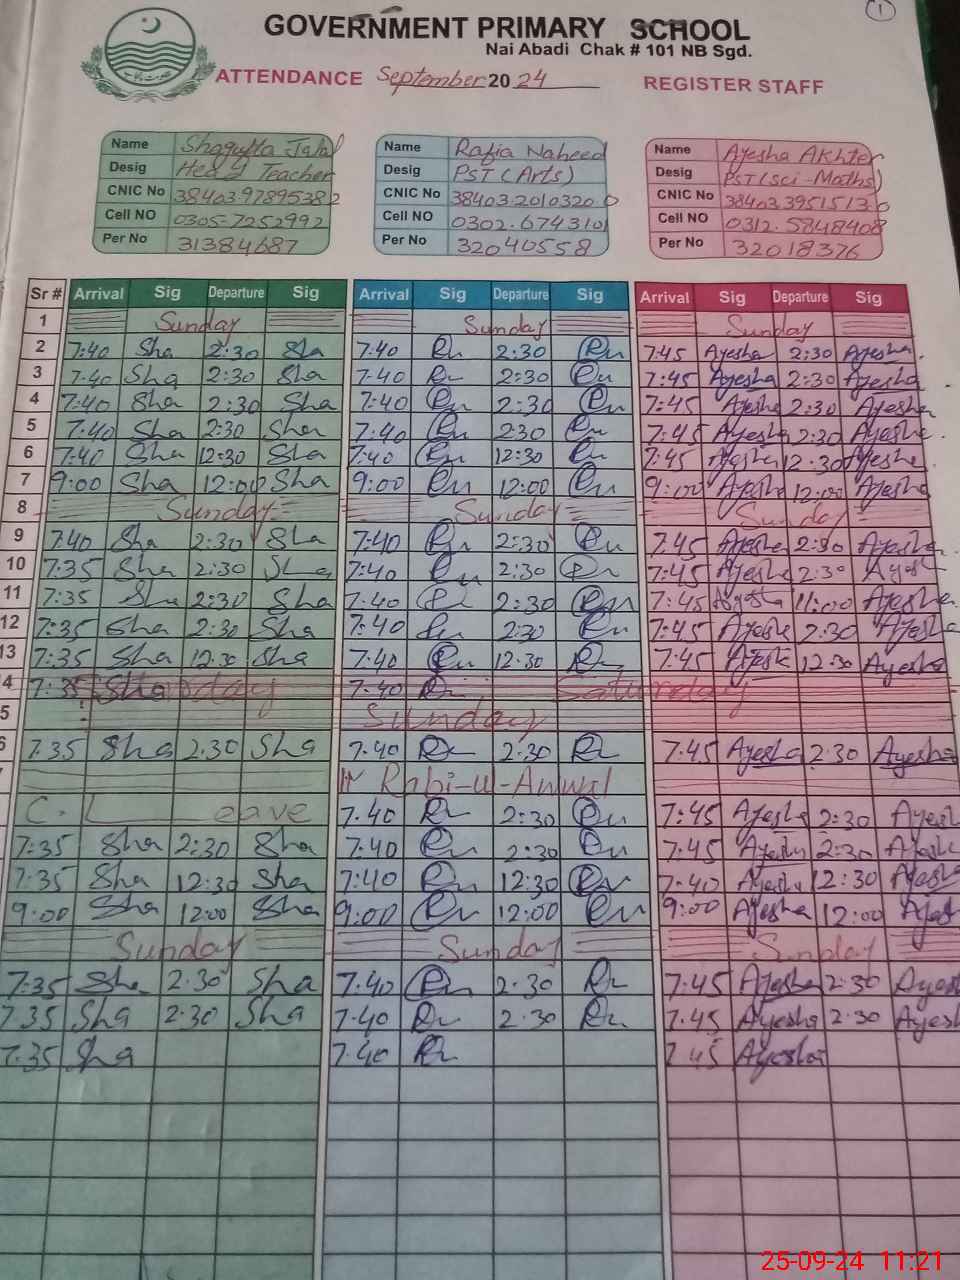 1
GOVERNMENT PRIMARY SCHOOL
Nai Abadi Chak # 101 NB Sgd.
ATTENDANCE September 2024 REGISTER STAFF
Name Shagufta Jalal Name Rafia Naheed Name Ayesha Akhter
Desig Head Teacher Desig PST (Arts) Desig PST (Sci-Maths)
CNIC No 3840397895382 CNIC No 38403.2010320.0 CNIC No 38403.3951513.0
Cell NO 0305-7252992 Cell NO 0302.6743101 Cell NO 0312.5848408
Per No 31384687 Per No 32040558 Per No 32018376
Sr # Arrival Sig Departure Sig Arrival Sig Departure Sig Arrival Sig Departure Sig
1 Sunday Sunday Sunday
2 7:40 Sha 2:30 Sha 7:40 2:30 7:45 Ayesha 2:30 Ayesha.
3 7:40 Sha 2:30 Sha 7:40 2:30 7:45 Ayesha 2:30 Ayesha
4 7:40 Sha 2:30 Sha 7:40 2:30 7:45 Ayesha 2:30 Ayesha
5 7:40 Sha 2:30 Sha 7:40 2:30 7:45 Ayesha 2:30 Ayesha.
6 7:40 Sha 12:30 Sha 7:40 12:30 7:45 Ayesha 12:30 Ayesha.
7 9:00 Sha 12:00 Sha 9:00 12:00 9:00 Ayesha 12:00 Ayesha
8 Sunday Sunday Sunday
9 7:40 Sha 2:30 Sha 7:40 2:30 7:45 Ayesha 2:30 Ayesha.
10 7:35 Sha 2:30 Sha 7:40 2:30 7:45 Ayesha 2:30 Ayesha
11 7:35 Sha 2:30 Sha 7:40 2:30 7:45 Ayesha 11:00 Ayesha.
12 7:35 Sha 2:30 Sha 7:40 2:30 7:45 Ayesha 2:30 Ayesha
13 7:35 Sha 12:30 Sha 7:40 12:30 7:45 Ayesha 12:30 Ayesha
4 7:35 Sha 7.40 Saturday
5 Sunday
6 7.35 Sha 2.30 Sha 7:40 2:30 7:45 Ayesha 2:30 Ayesha
Rabi-ul-Awwal
C. Leave 7.40 2:30 7:45 Ayesha 2:30 Ayesh
7:35 Sha 2:30 Sha 7:40 2:30 7:45 Ayesha 2:30 Ayesh
7:35 Sha 12:30 Sha 7:40 12:30 7:40 Ayesha 12:30 Ayesh
9:00 Sha 12:00 Sha 9:00 12:00 9:00 Ayesha 12:00 Ayesh
Sunday Sunday Sunday
7:35 Sha 2.30 Sha 7:40 2.30 7:45 Ayesha 2:30 Ayesh
7.35 Sha 2:30 Sha 7.40 2.30 7:45 Ayesha 2:30 Ayesh
7.35 Sha 7.40 7 45 Ayesha
25-09-24 11:21